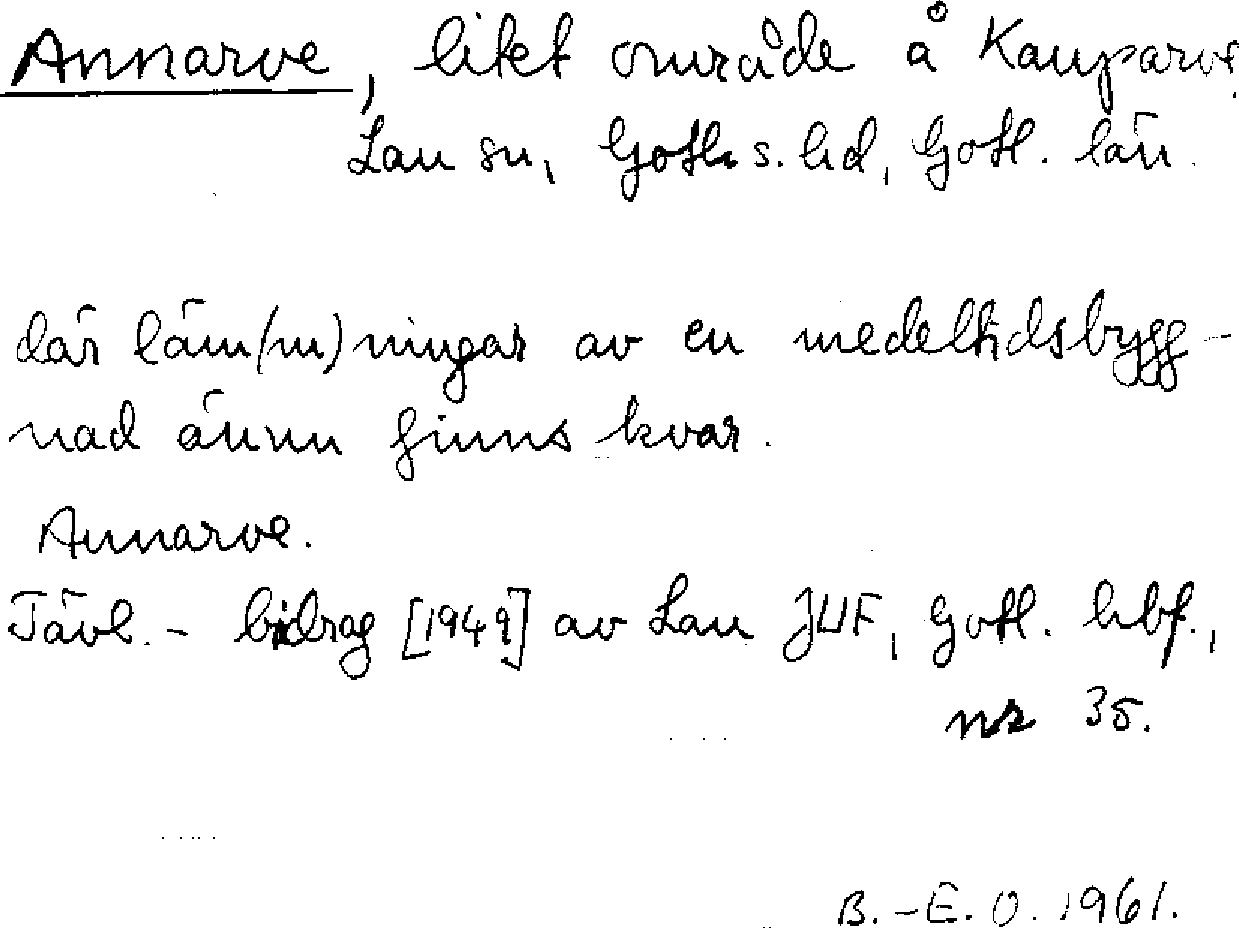 Annarve, litet område å Kauparve,
Lau sn, Gotl. s. hd, Gotl. län.
där läm(m)ningar av en medeltidsbygg-
nad ännu finns kvar.
Annarve.
Tävl.- bidrag [1949] av Lau JUF, Gotl. hbf.,
nr 35.
B.-E. O. 1961.